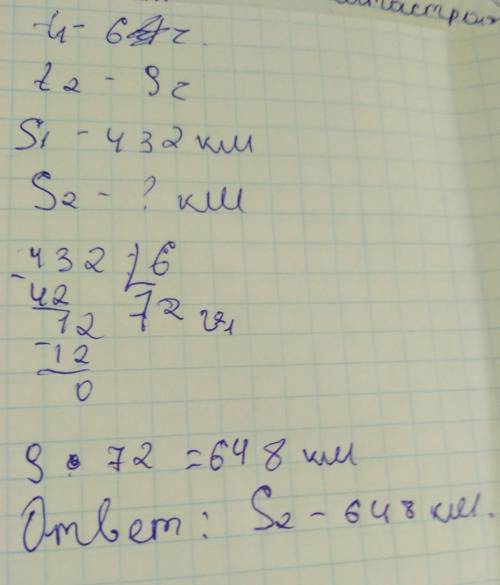 t1 - 6 ч.
t2 - 9 ч
S1 - 432 км
S2 - ? км
-432 | 6
42 72
12
-12
0
9 • 72 = 648 км
Ответ: S2 - 648 км.